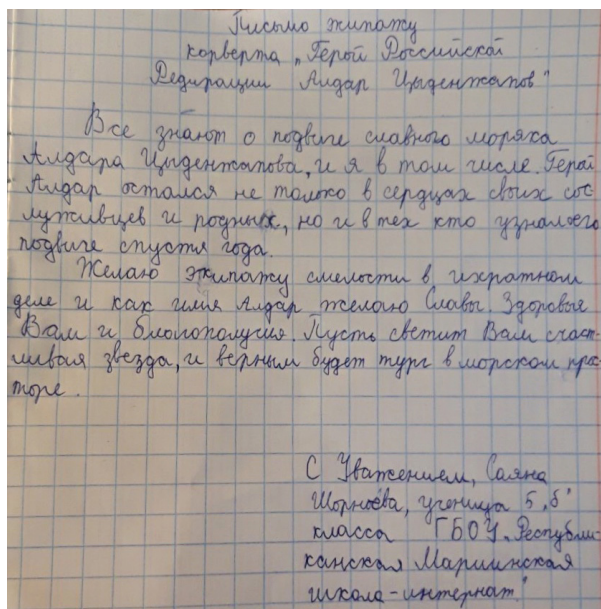 Письмо экипажу
корверта „Герой Российской
Федирации Алдар Цыденжапов"
Все знают о подвиге славного моряка
Алдара Цыденжапова, и я в том числе. Герой
Алдар остался не только в сердцах своих сос-
луживцев и родных, но и в тех кто узнал о его
подвиге спустя года.
Желаю экипажу смелости в ихратном
деле и как имя Алдар желаю Славы. Здоровья
Вам и благополучия. Пусть светит Вам счаст-
ливая звезда, и верным будет путь в морском прос-
торе.
С Уважением, Саяна
Шорноева, ученица 5 „б"
класса ГБОУ „Республи-
канская Мариинская
школа-интернат"